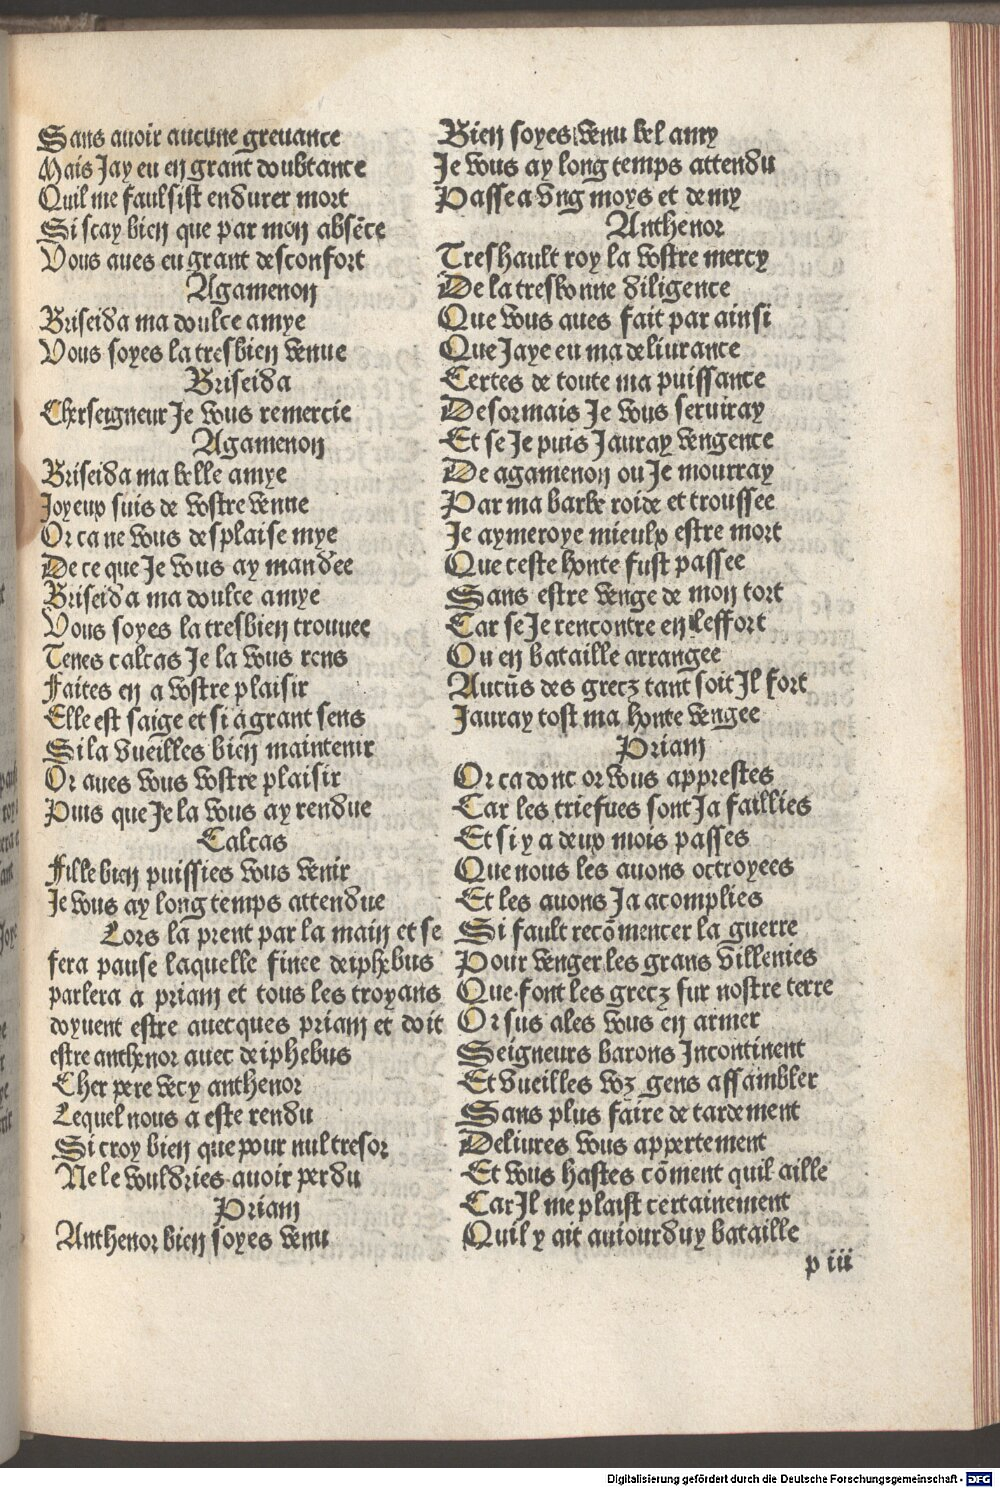 Sans auoir aucune greuance
Mais Jay eu en grant doubtance
Quil me faulsist endurer mort
Si scay bien que par mon absẽce
Vous aues eu grant desconfort
Agamenon
Briseida ma doulce amye
Vous soyes la tresbien venue
Briseida
Cherseigneur Je vous remercie
Agamenon
Briseida ma belle amye
Joyeux suis de vostre venue
Or ca ne vous desplaise mye
De ce que Je vous ay mandee
Briseida ma doulce amye
Vous soyes la tresbien trouuee
Tenes calcas Je la vous rens
Faites en a vostre plaisir
Elle est saige et si a grant sens
Si la vueilles bien maintenir
Or aues vous vostre plaisir
Puis que Je la vous ay rendue
Calcas
Fille bien puissies vous venir
Je vous ay long temps attendue
Lors la prent par la main et se
fera pause laquelle finee deiphebus
parlera a priam et tous les troyans
doyuent estre auecques priam et doit
estre anthenor auec deiphebus
Cher pere vecy anthenor
Lequel nous a este rendu
Si croy bien que pour nul tresor
Ne le vouldries auoir perdu
Priam
Anthenor bien soyes venu
Bien soyes venu bel amy
Je vous ay long temps attendu
Passe a vng moys et demy
Anthenor
Treshault roy la vostre mercy
De la tresbonne diligence
Que vous aues fait par ainsi
Que Jaye eu ma deliurance
Certes de toute ma puissance
Desormais Je vous seruiray
Et se Je puis Jauray vengence
De agamenon ou Je mourray
Par ma barbe roide et troussee
Je aymeroye mieulx estre mort
Que ceste honte fust passee
Sans estre venge de mon tort
Car se Je rencontre en leffort
Ou en bataille arrangee
Aucũs des grecz tant soit Jl fort
Jauray tost ma honte vengee
Priam
Or ca donc or vous apprestes
Car les triefues sont Ja faillies
Et si y a deux mois passes
Que nous les auons octroyees
Et les auons Ja acomplies
Si fault recõmencer la guerre
Pour venger les grans villenies
Que font les grecz sur nostre terre
Or sus ales vous en armer
Seigneurs barons Jncontinent
Et vueilles voz gens assambler
Sans plus faire de tardement
Deliures vous appertement
Et vous hastes cõment quil aille
Car Jl me plaist certainement
Quil y ait auiourduy bataille
p iii
Digitalisierung gefördert durch die Deutsche Forschungsgemeinschaft - DFG